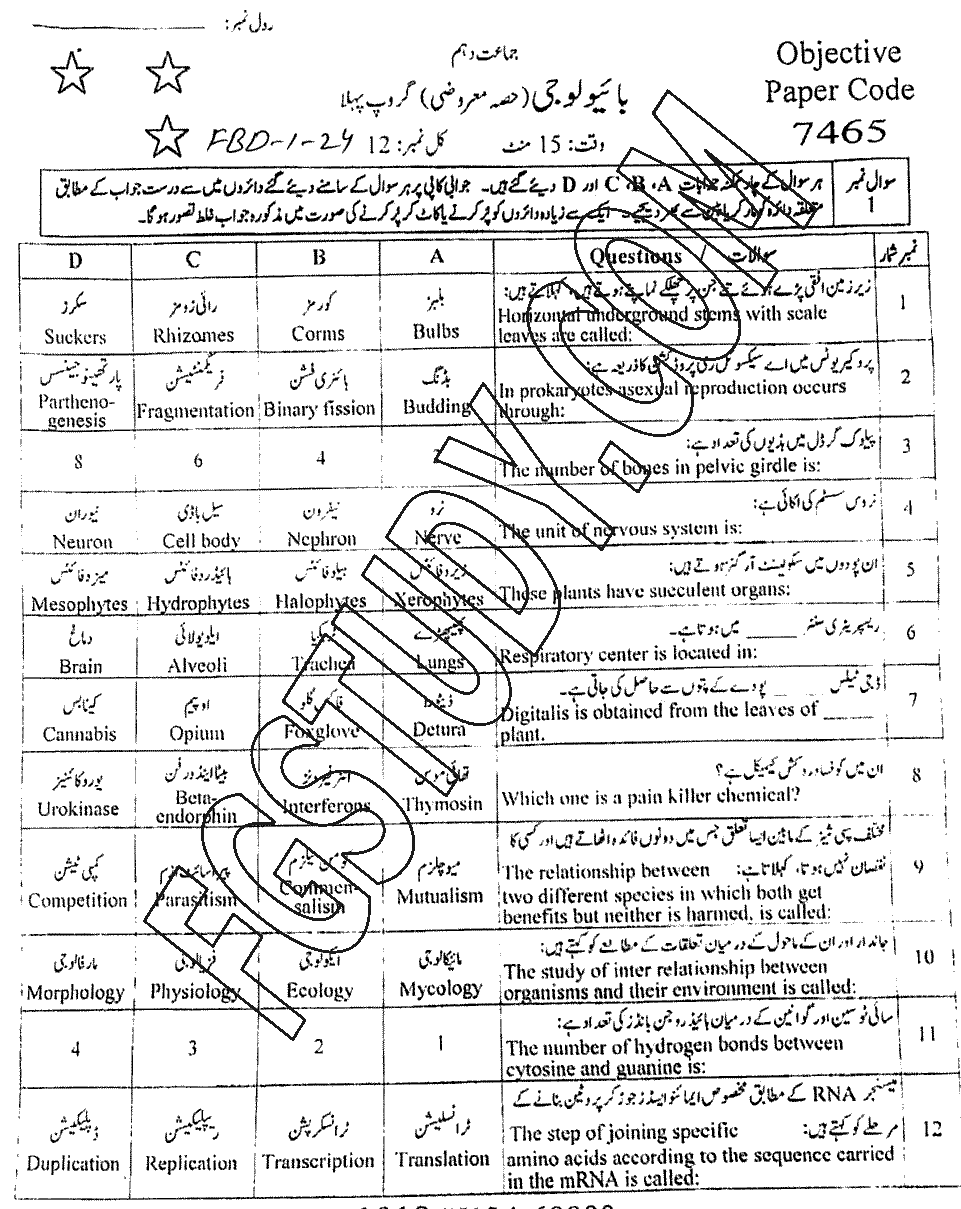 رول نمبر: ____________
جماعت دہم
Objective
Paper Code
7465
بائیولوجی (حصہ معروضی) گروپ پہلا
وقت: 15 منٹ کل نمبر: 12 FBD-1-24
سوال نمبر 1
ہر سوال کے چار ممکنہ جوابات A، B، C اور D دیئے گئے ہیں۔ جوابی کاپی پر ہر سوال کے سامنے دیئے گئے دائروں میں سے درست جواب کے مطابق
متعلقہ دائرہ کو مارکر یا پین سے بھر دیجیے۔ ایک سے زیادہ دائروں کو پُر کرنے یا کاٹ کر پُر کرنے کی صورت میں مذکورہ جواب غلط تصور ہو گا۔
نمبر شمار سوالات / Questions A B C D
1 زیر زمین افقی پڑے ہوئے تنے جن پر چھلکے نما پتے ہوتے ہیں، کہلاتے ہیں:
Horizontal underground stems with scale
leaves are called:
بلبز کورمز رائی زومز سکرز
Bulbs Corms Rhizomes Suckers
2 پروکیریوٹس میں اے سیکسوئل ری پروڈکشن کا ذریعہ ہے:
In prokaryotes asexual reproduction occurs
through:
بڈنگ بائنری فشن فریگمنٹیشن پارتھینوجینسس
Budding Binary fission Fragmentation Partheno-
genesis
3 پیلوک گرڈل میں ہڈیوں کی تعداد ہے:
The number of bones in pelvic girdle is:
2 4 6 8
4 نروس سسٹم کی اکائی ہے:
The unit of nervous system is:
نرو نیفرون سیل باڈی نیوران
Nerve Nephron Cell body Neuron
5 ان پودوں میں سکولینٹ آرگنز ہوتے ہیں:
These plants have succulent organs:
زیروفائٹس ہیلوفائٹس ہائیڈروفائٹس میزوفائٹس
Xerophytes Halophytes Hydrophytes Mesophytes
6 ریسپریٹری سنٹر _____ میں ہوتا ہے۔
Respiratory center is located in:
پھیپھڑے ٹریکیا ایلویولائی دماغ
Lungs Trachea Alveoli Brain
7 ڈجی ٹیلس _____ پودے کے پتوں سے حاصل کی جاتی ہے۔
Digitalis is obtained from the leaves of _____
plant.
ڈیٹورا فاکس گلو اوپیم کینابس
Detura Foxglove Opium Cannabis
8 ان میں کونسا درد کش کیمیکل ہے؟
Which one is a pain killer chemical?
تھائی موسن انٹرفیرونز بیٹا اینڈورفن یوروکائنیز
Thymosin Interferons Beta-
endorphin Urokinase
9 مختلف سپی شیز کے مابین ایسا تعلق جس میں دونوں فائدہ اٹھاتے ہیں اور کسی کا
نقصان نہیں ہوتا، کہلاتا ہے: The relationship between
two different species in which both get
benefits but neither is harmed, is called:
میوچلزم کومن سیلزم پیراسائٹ ازم کمپی ٹیشن
Mutualism Commen-
salism Parasitism Competition
10 جاندار اور ان کے ماحول کے درمیان تعلقات کے مطالعے کو کہتے ہیں:
The study of inter relationship between
organisms and their environment is called:
مائیکالوجی ایکولوجی فزیالوجی مارفالوجی
Mycology Ecology Physiology Morphology
11 سائی ٹوسین اور گوانین کے درمیان ہائیڈروجن بانڈز کی تعداد ہے:
The number of hydrogen bonds between
cytosine and guanine is:
1 2 3 4
12 میسنجر RNA کے مطابق مخصوص ایمائنو ایسڈز جوڑ کر پروٹین بنانے کے
مرحلے کو کہتے ہیں: The step of joining specific
amino acids according to the sequence carried
in the mRNA is called:
ٹرانسلیشن ٹرانسکرپشن ریپلیکیشن ڈپلیکیشن
Translation Transcription Replication Duplication
FGSTUDY.COM